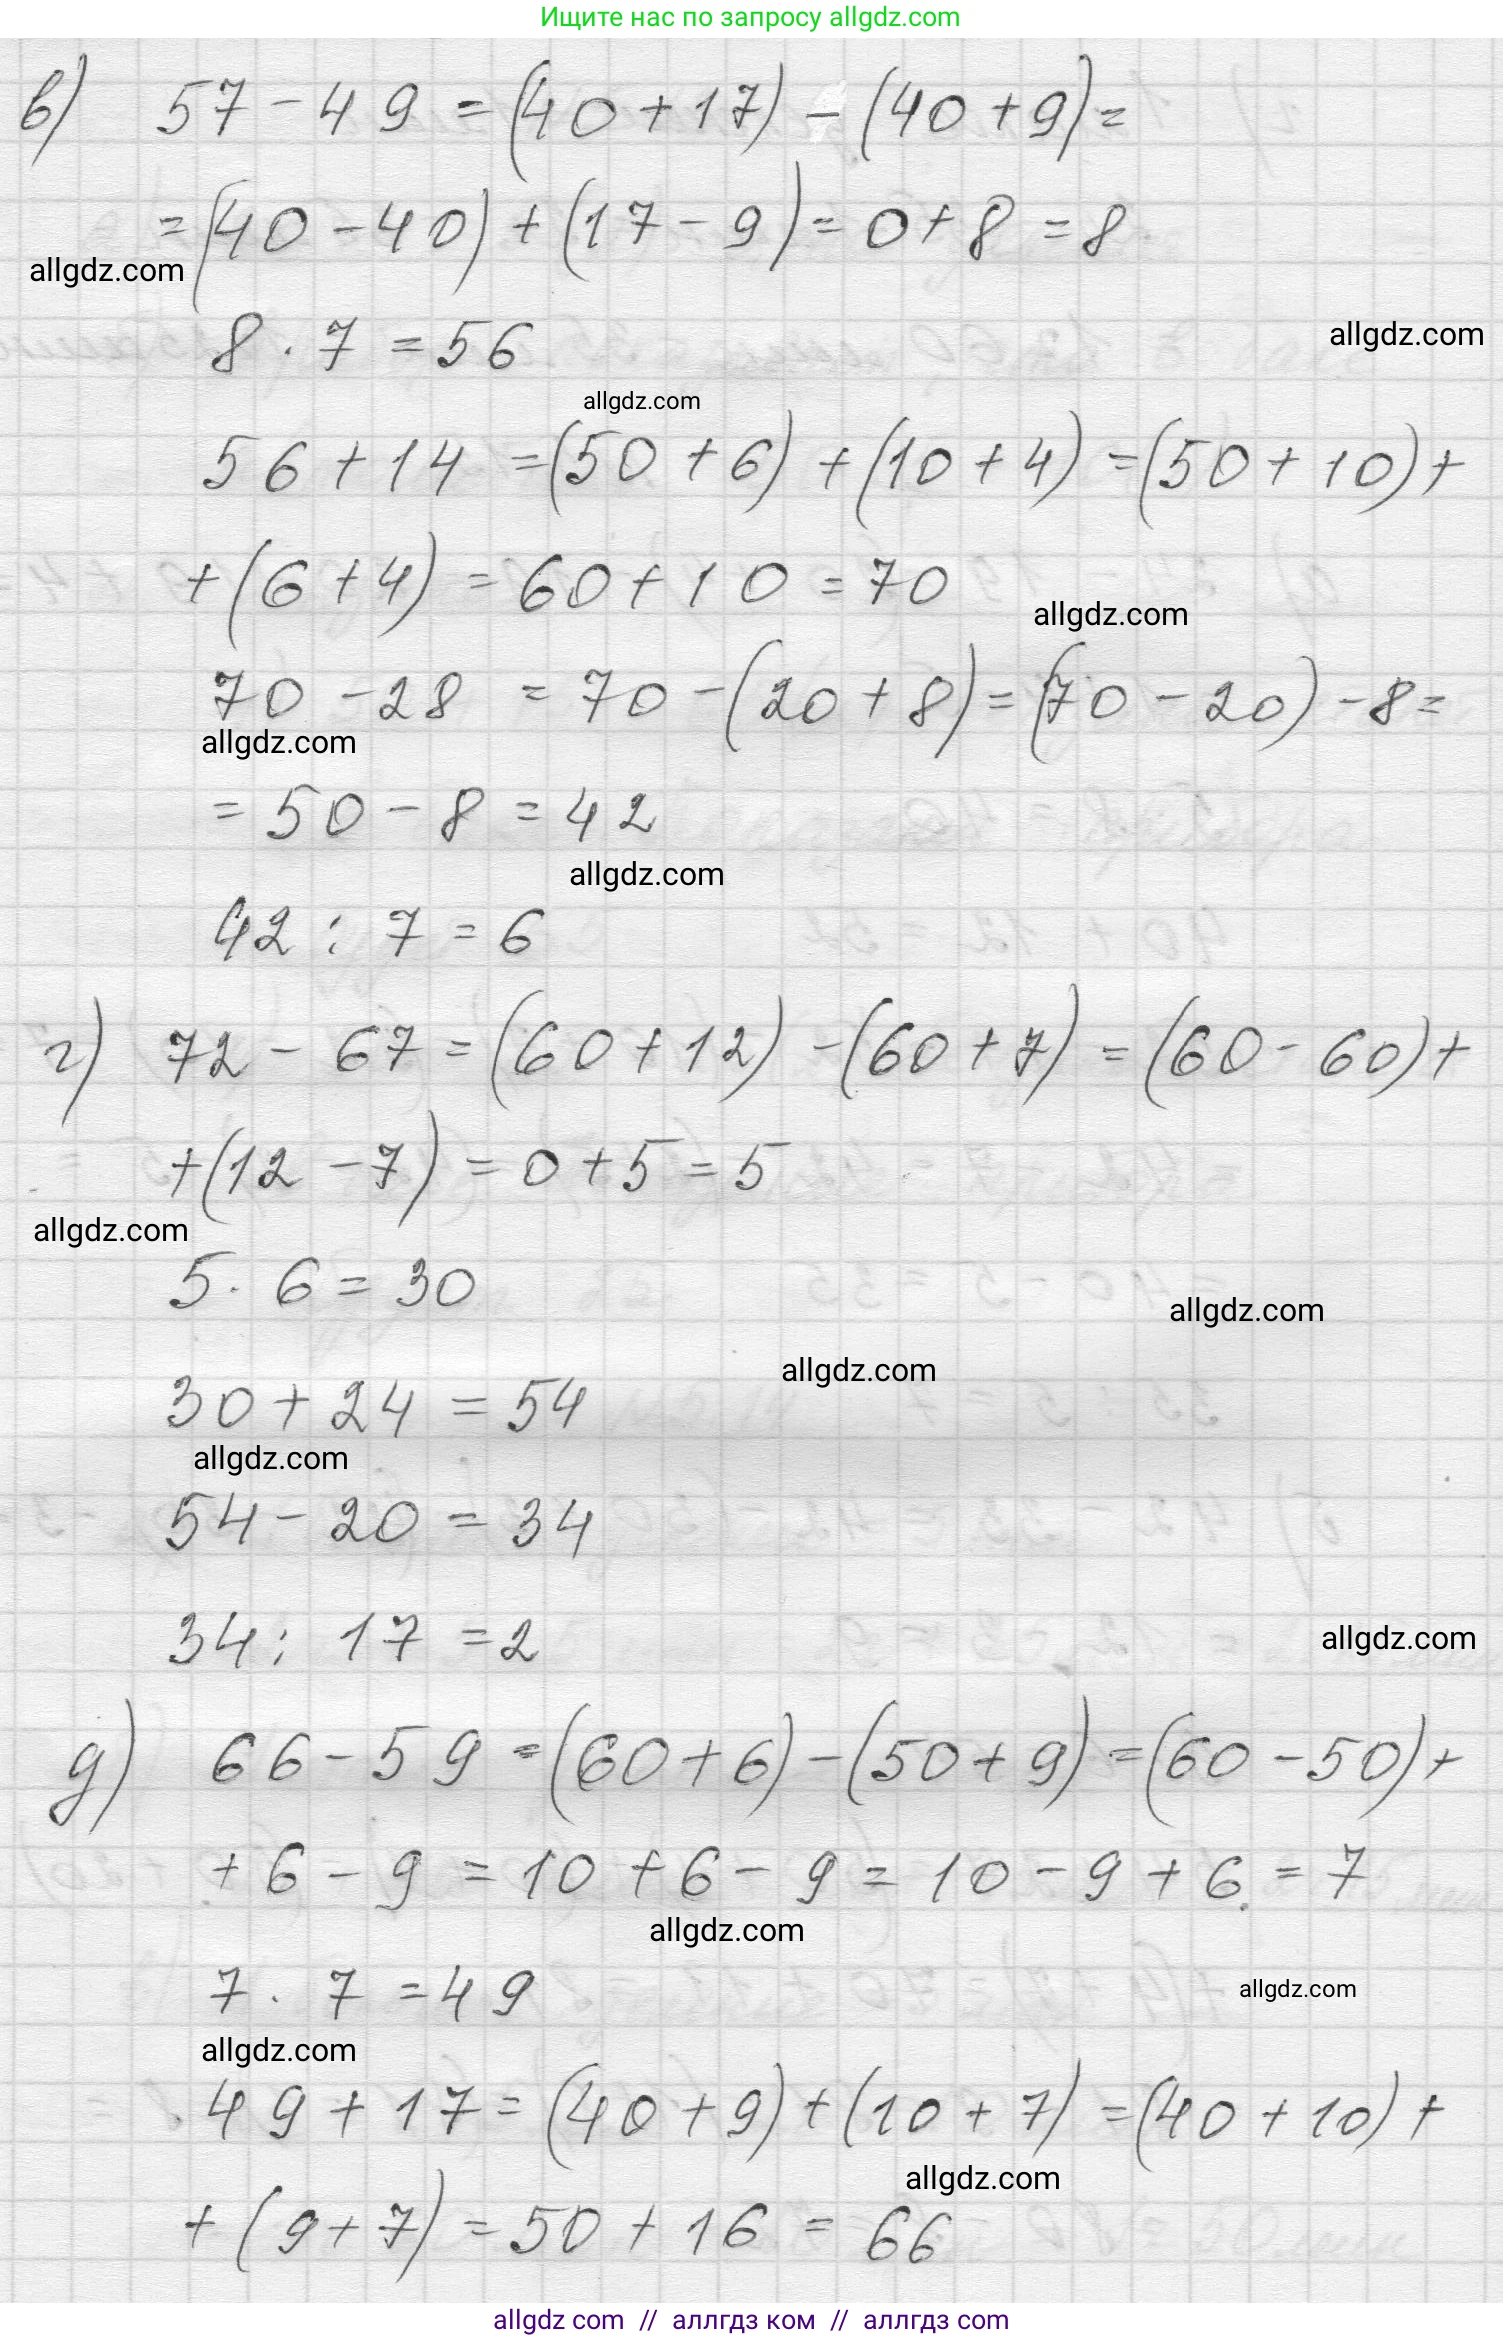 Ищите нас по запросу allgdz.com
в) 57 - 49 = (40 + 17) - (40 + 9) =
= (40 - 40) + (17 - 9) = 0 + 8 = 8
allgdz.com
allgdz.com
8 · 7 = 56
allgdz.com
56 + 14 = (50 + 6) + (10 + 4) = (50 + 10) +
+ (6 + 4) = 60 + 10 = 70
allgdz.com
70 - 28 = 70 - (20 + 8) = (70 - 20) - 8 =
allgdz.com
= 50 - 8 = 42
allgdz.com
42 : 7 = 6
г) 72 - 67 = (60 + 12) - (60 + 7) = (60 - 60) +
+ (12 - 7) = 0 + 5 = 5
allgdz.com
5 · 6 = 30
allgdz.com
allgdz.com
30 + 24 = 54
allgdz.com
54 - 20 = 34
34 : 17 = 2
allgdz.com
д) 66 - 59 = (60 + 6) - (50 + 9) = (60 - 50) +
+ 6 - 9 = 10 + 6 - 9 = 10 - 9 + 6 = 7
allgdz.com
7 · 7 = 49
allgdz.com
allgdz.com
49 + 17 = (40 + 9) + (10 + 7) = (40 + 10) +
allgdz.com
+ (9 + 7) = 50 + 16 = 66
allgdz.com // аллгдз ком // аллгдз com